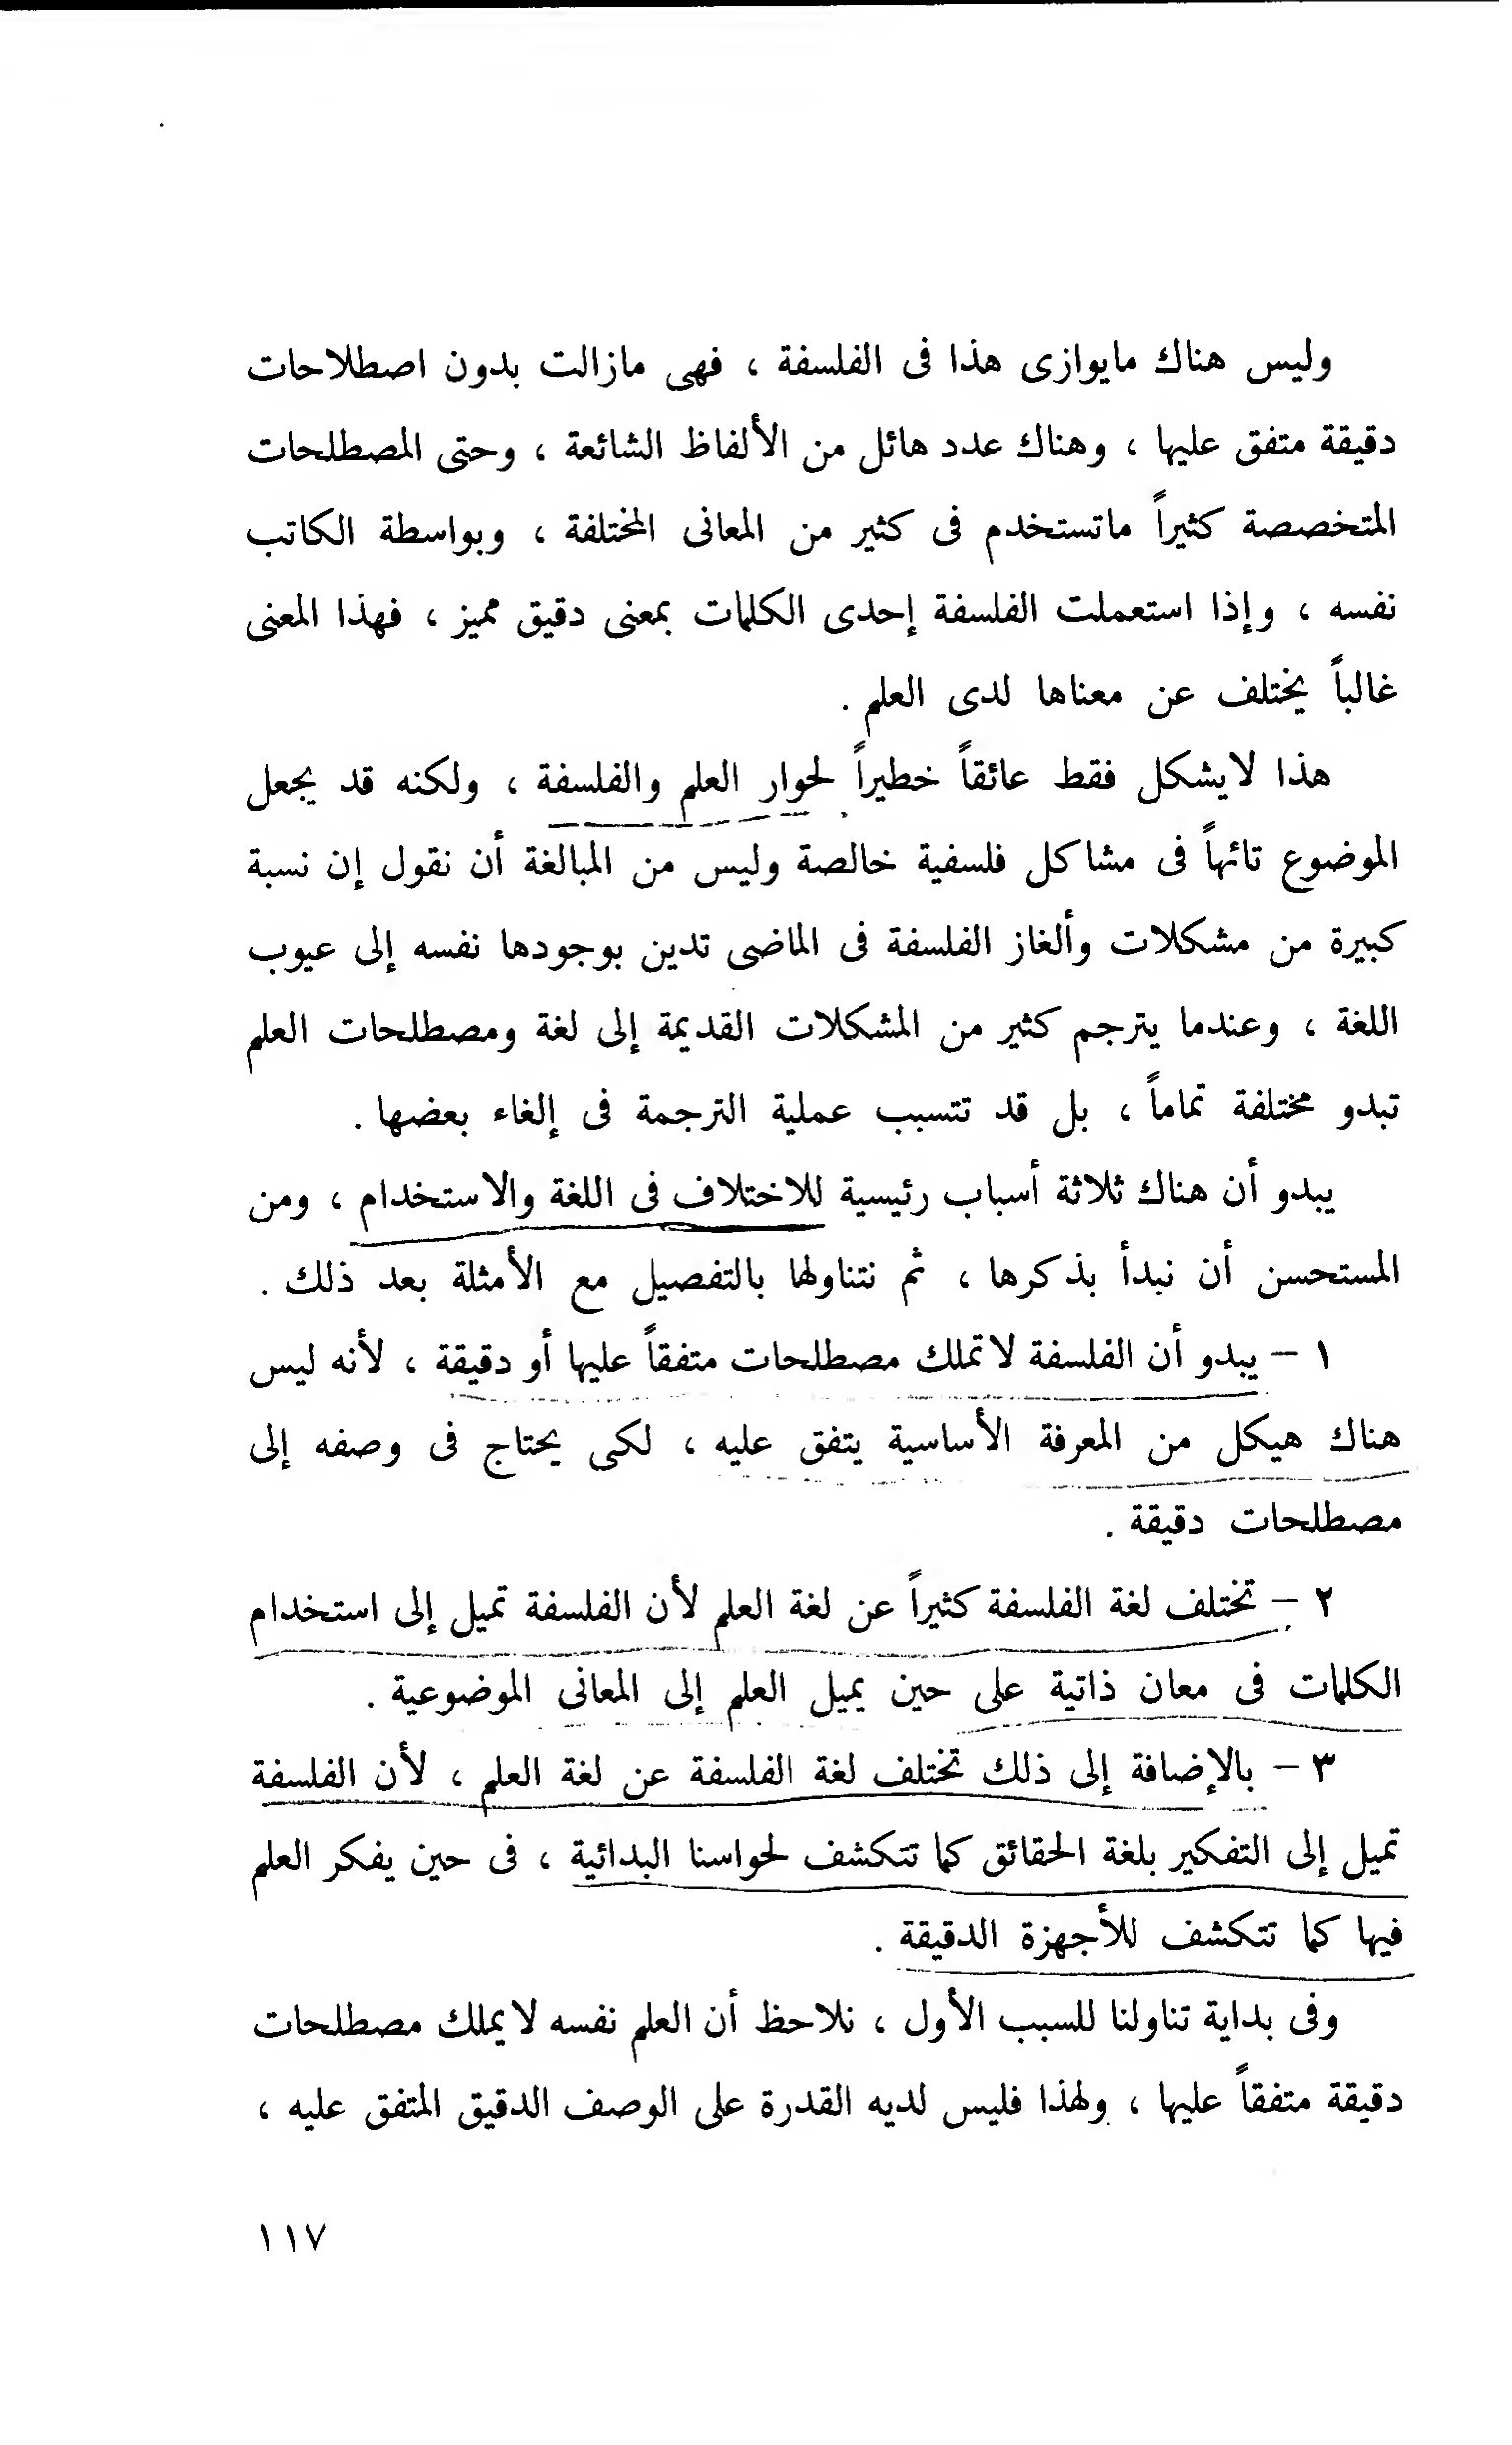 وليس هناك مايوازى هذا فى الفلسفة ، فهى مازالت بدون اصطلاحات
دقيقة متفق عليها ، وهناك عدد هائل من الألفاظ الشائعة ، وحتى المصطلحات
المتخصصة كثيراً ماتستخدم فى كثير من المعانى المختلفة ، وبواسطة الكاتب
نفسه ، وإذا استعملت الفلسفة إحدى الكلمات بمعنى دقيق مميز ، فهذا المعنى
غالباً يختلف عن معناها لدى العلم .
هذا لايشكل فقط عائقاً خطيراً لحوار العلم والفلسفة ، ولكنه قد يجعل
الموضوع تائهاً فى مشاكل فلسفية خالصة وليس من المبالغة أن نقول إن نسبة
كبيرة من مشكلات وألغاز الفلسفة فى الماضى تدين بوجودها نفسه إلى عيوب
اللغة ، وعندما يترجم كثير من المشكلات القديمة إلى لغة ومصطلحات العلم
تبدو مختلفة تماماً ، بل قد تتسبب عملية الترجمة فى إلغاء بعضها .
يبدو أن هناك ثلاثة أسباب رئيسية للاختلاف فى اللغة والاستخدام ، ومن
المستحسن أن نبدأ بذكرها ، ثم نتناولها بالتفصيل مع الأمثلة بعد ذلك .
١ – يبدو أن الفلسفة لاتملك مصطلحات متفقاً عليها أو دقيقة ، لأنه ليس
هناك هيكل من المعرفة الأساسية يتفق عليه ، لكى يحتاج فى وصفه إلى
مصطلحات دقيقة .
٢ – تختلف لغة الفلسفة كثيراً عن لغة العلم لأن الفلسفة تميل إلى استخدام
الكلمات فى معان ذاتية على حين يميل العلم إلى المعانى الموضوعية .
٣ – بالإضافة إلى ذلك تختلف لغة الفلسفة عن لغة العلم ، لأن الفلسفة
تميل إلى التفكير بلغة الحقائق كما تتكشف لحواسنا البدائية ، فى حين يفكر العلم
فيها كما تتكشف للأجهزة الدقيقة .
وفى بداية تناولنا للسبب الأول ، نلاحظ أن العلم نفسه لايملك مصطلحات
دقيقة متفقاً عليها ، ولهذا فليس لديه القدرة على الوصف الدقيق المتفق عليه ،
١١٧